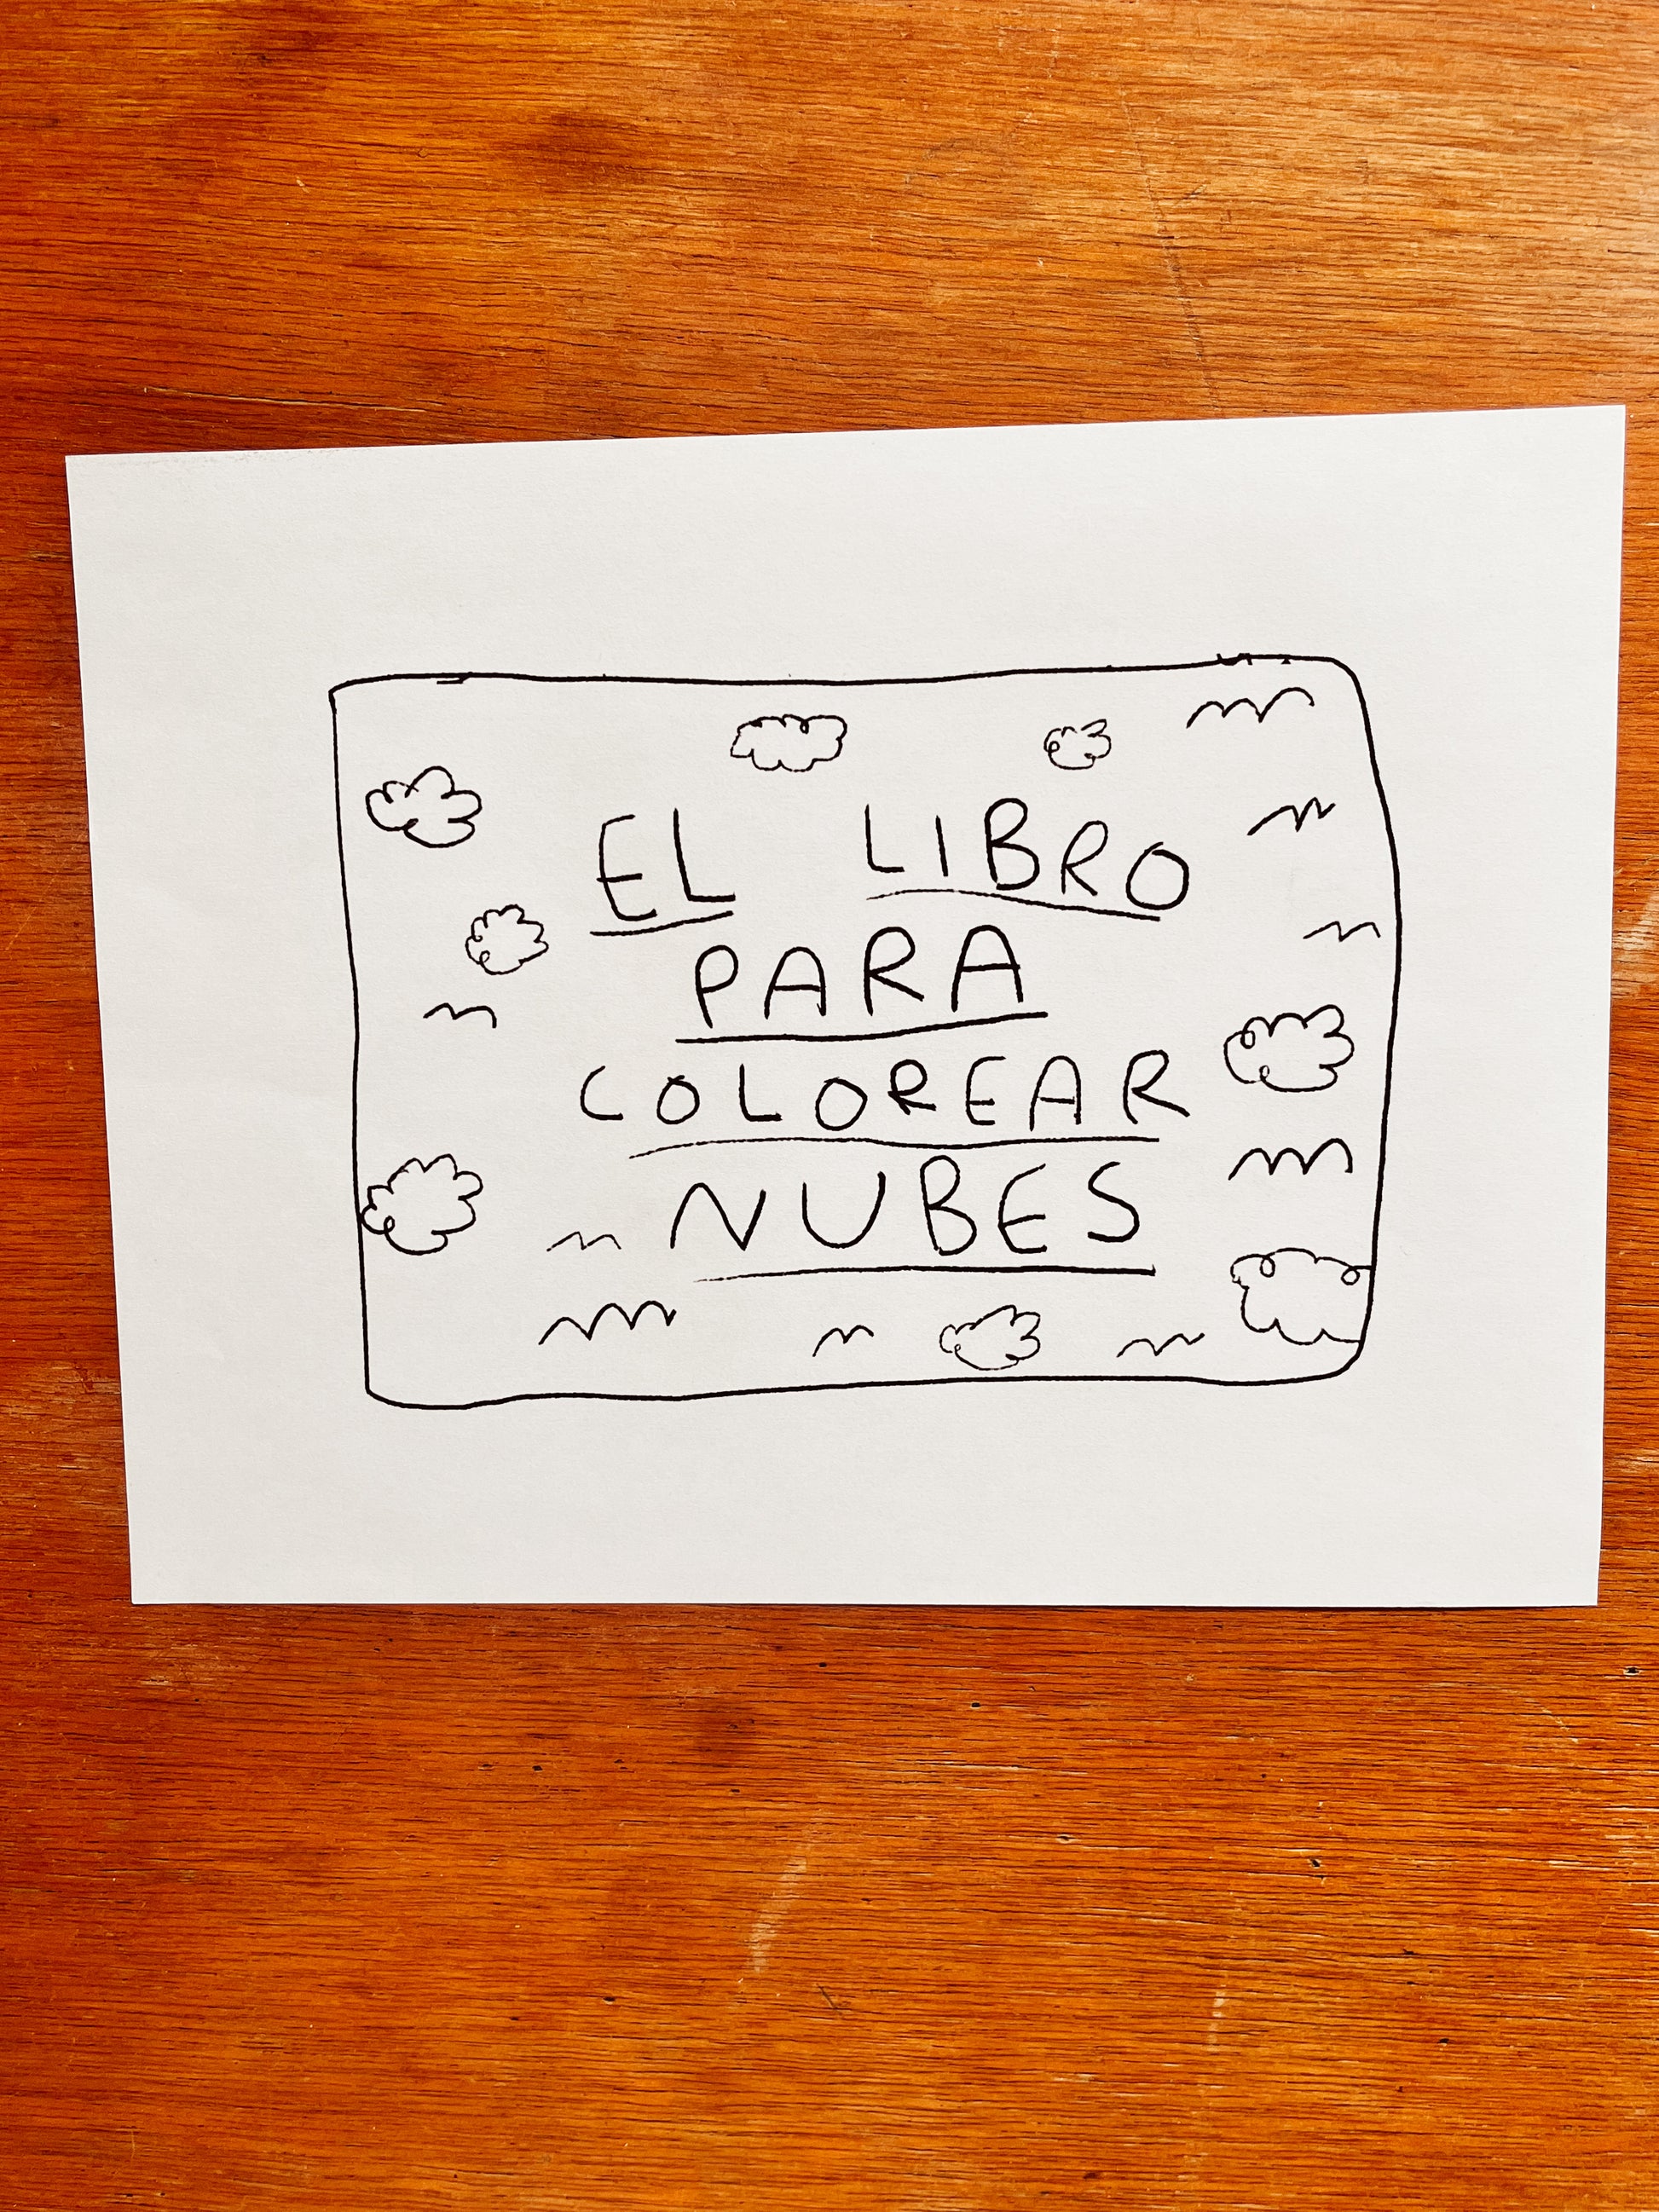 EL LIBRO
PARA
COLOREAR
NUBES